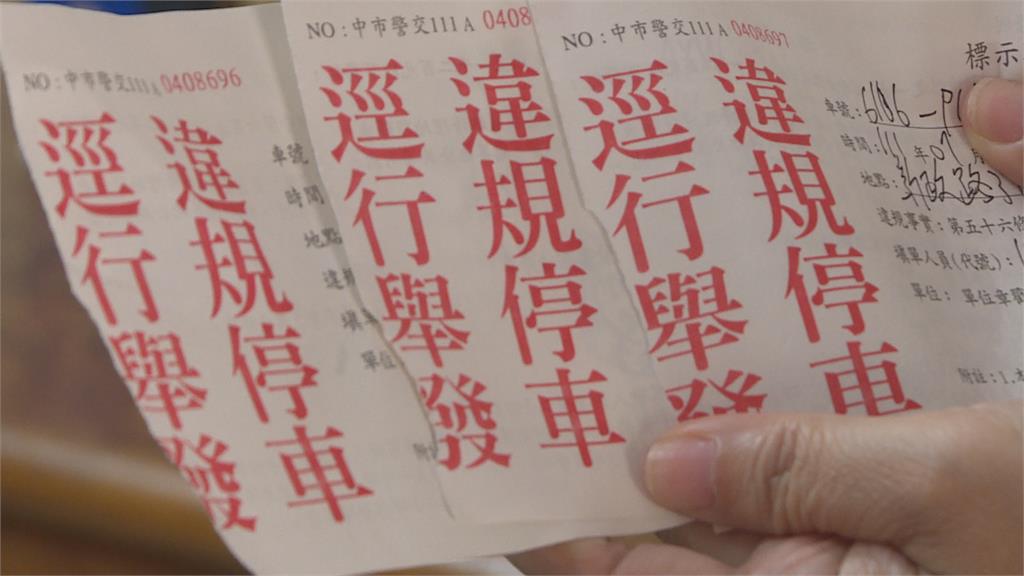 NO:中市警交111A0408696
違規停車
逕行舉發
車號
時間
地點
違
填
單位
附
NO:中市警交111A 0408
違規停車
逕行舉發
NO:中市警交111A0408697
違規停車
逕行舉發
標示
車號:6186-P
時間:111年01
地點:
違規事實:第五十六條
填單人員(代號):1
單位: 單位章戳
附註:1.本